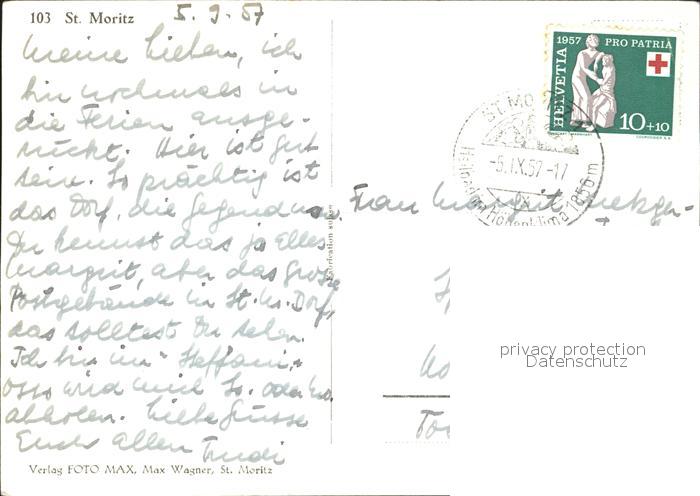 103 St. Moritz
5. 9. 57
Meine Lieben, ich
bin nochmals in
die Ferien ausge-
rückt. Hier ist gut
sein. So prächtig ist
das Dorf, die Gegend usw.
Du kennst das ja Alles
Margrit, aber das grosse
Postgebäude in St. M. Dorf,
das solltest Du sehen.
Ich bin im "Steffani,"
wird mich So. oder Mo.
abholen. Liebe Grüsse
Euch allen Trudi
Verlag FOTO MAX, Max Wagner, St. Moritz
Fabrication suisse
1957 PRO PATRIA
HELVETIA
10+10
COURVOISIER S.A.
ST. MO
-5.IX.57-17
Höhenklima 1856 m
Frau Margrit
privacy protection
Datenschutz